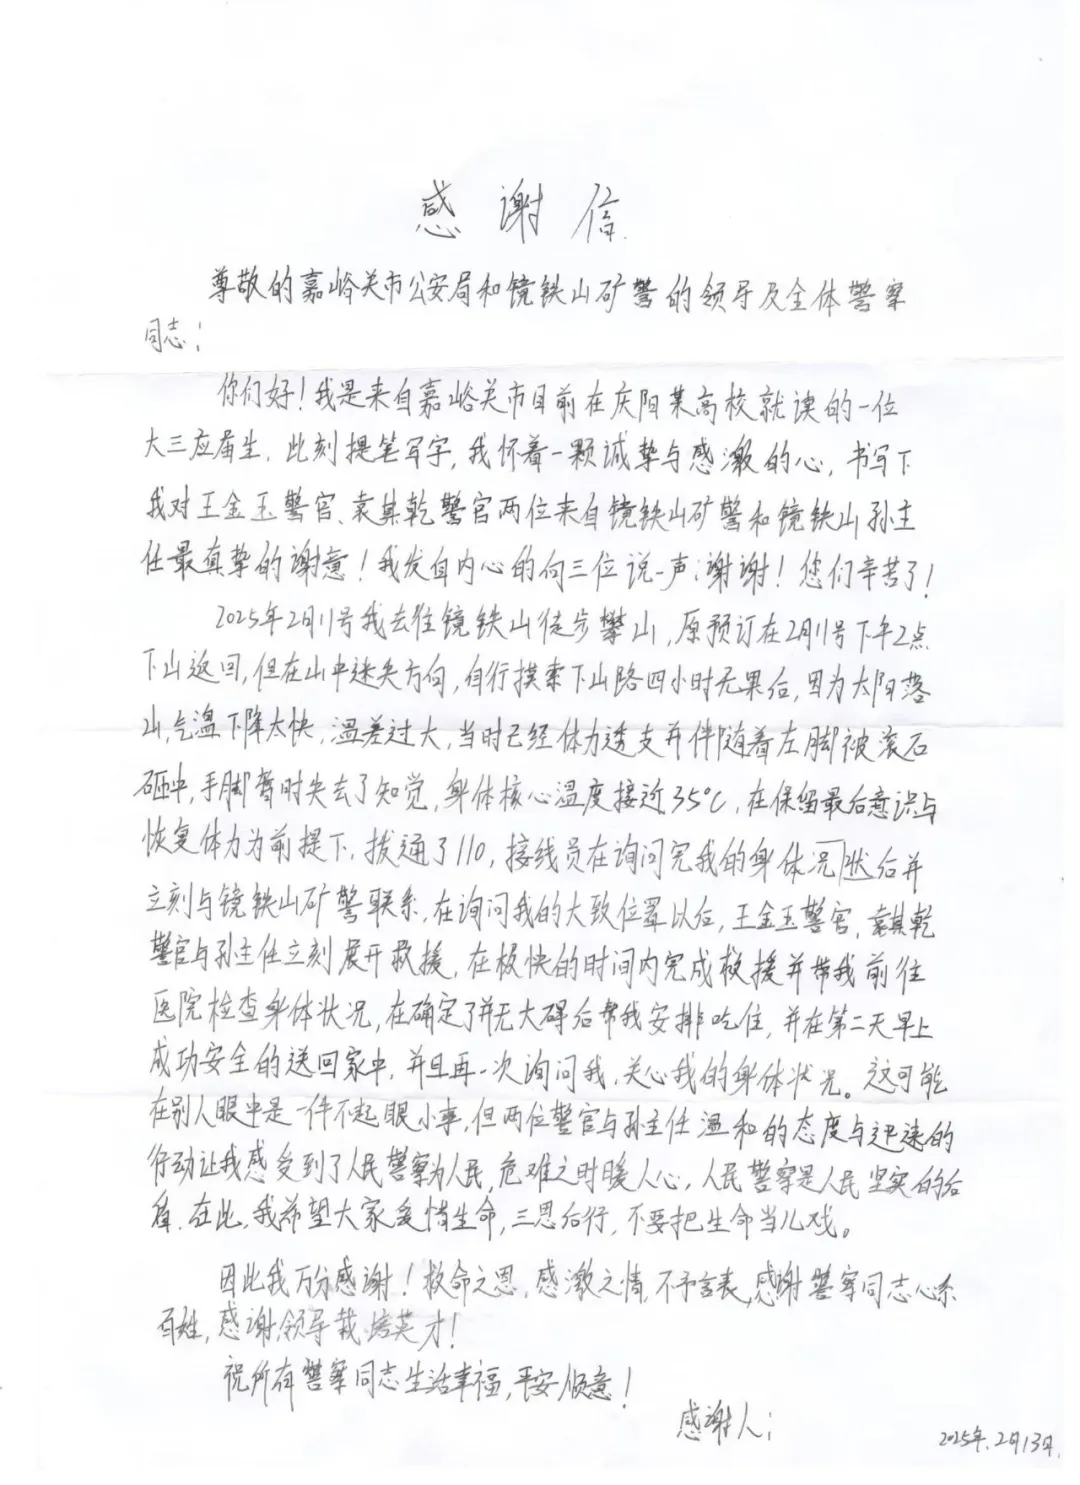 感谢信
尊敬的嘉峪关市公安局和镜铁山矿警的领导及全体警察
同志：
你们好！我是来自嘉峪关市目前在庆阳某高校就读的一位
大三应届生，此刻提笔写字，我怀着一颗诚挚与感激的心，书写下
我对王金玉警官、袁其乾警官两位来自镜铁山矿警和镜铁山孙主
任最真挚的谢意！我发自内心的向三位说一声：谢谢！您们辛苦了！
2025年2月11号我去往镜铁山徒步攀山，原预订在2月11号下午2点
下山返回，但在山中迷失方向，自行摸索下山路四小时无果后，因为太阳落
山，气温下降太快，温差过大，当时已经体力透支并伴随着左脚被滚石
砸中，手脚暂时失去了知觉，身体核心温度接近35℃，在保留最后意识与
恢复体力为前提下，拔通了110，接线员在询问完我的身体况状后并
立刻与镜铁山矿警联系，在询问我的大致位置以后，王金玉警官，袁其乾
警官与孙主任立刻展开救援，在极快的时间内完成救援并带我前往
医院检查身体状况，在确定了并无大碍后帮我安排吃住，并在第二天早上
成功安全的送回家中，并且再一次询问我，关心我的身体状况。这可能
在别人眼中是一件不起眼小事，但两位警官与孙主任温和的态度与迅速的
行动让我感受到了人民警察为人民，危难之时暖人心，人民警察是人民坚实的后
盾，在此，我希望大家爱惜生命，三思后行，不要把生命当儿戏。
因此我万分感谢！救命之恩，感激之情，不予言表，感谢警察同志心系
百姓，感谢领导栽培英才！
祝所有警察同志生活幸福，平安顺意！
感谢人：
2025年2月13日